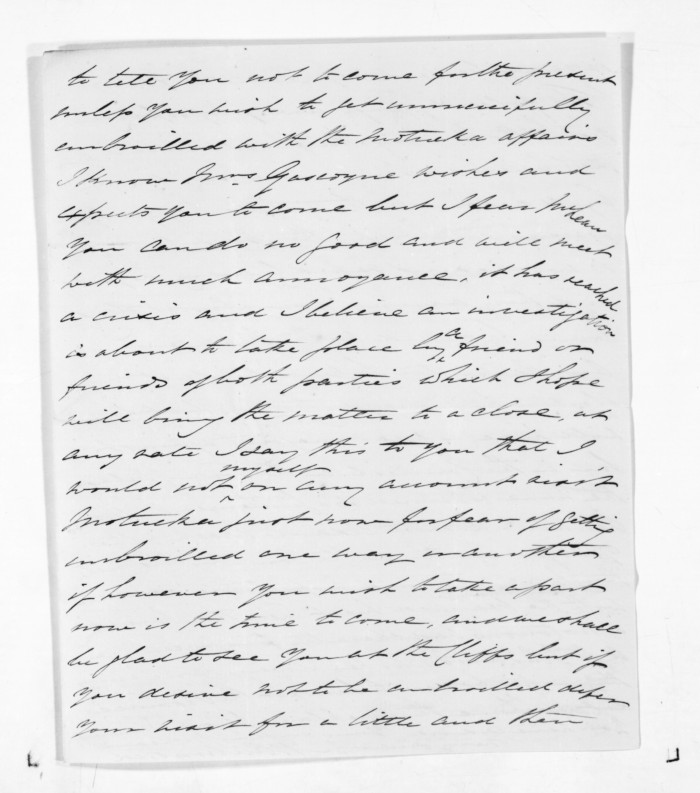 to tell You not to come for the present
unless You wish to get unmercifully
embroilled with the Motueka affairs
I know Mrs. Gascoyne wishes and
expects You to come but I fear My dear
You can do no good and will meet
with much annoyance, it has reached
a crisis and I believe an investigation
is about to take place by a friend or
friends of both parties which I hope
will bring the matter to a close, at
any rate I say this to You that I
would not myself on any account visit
Motueka just now for fear of getting
embroilled one way or another
if however You wish to take a part
now is the time to come, and we shall
be glad to see You at the Cliffs but if
you desire not to be embroilled defer
your visit for a little and then